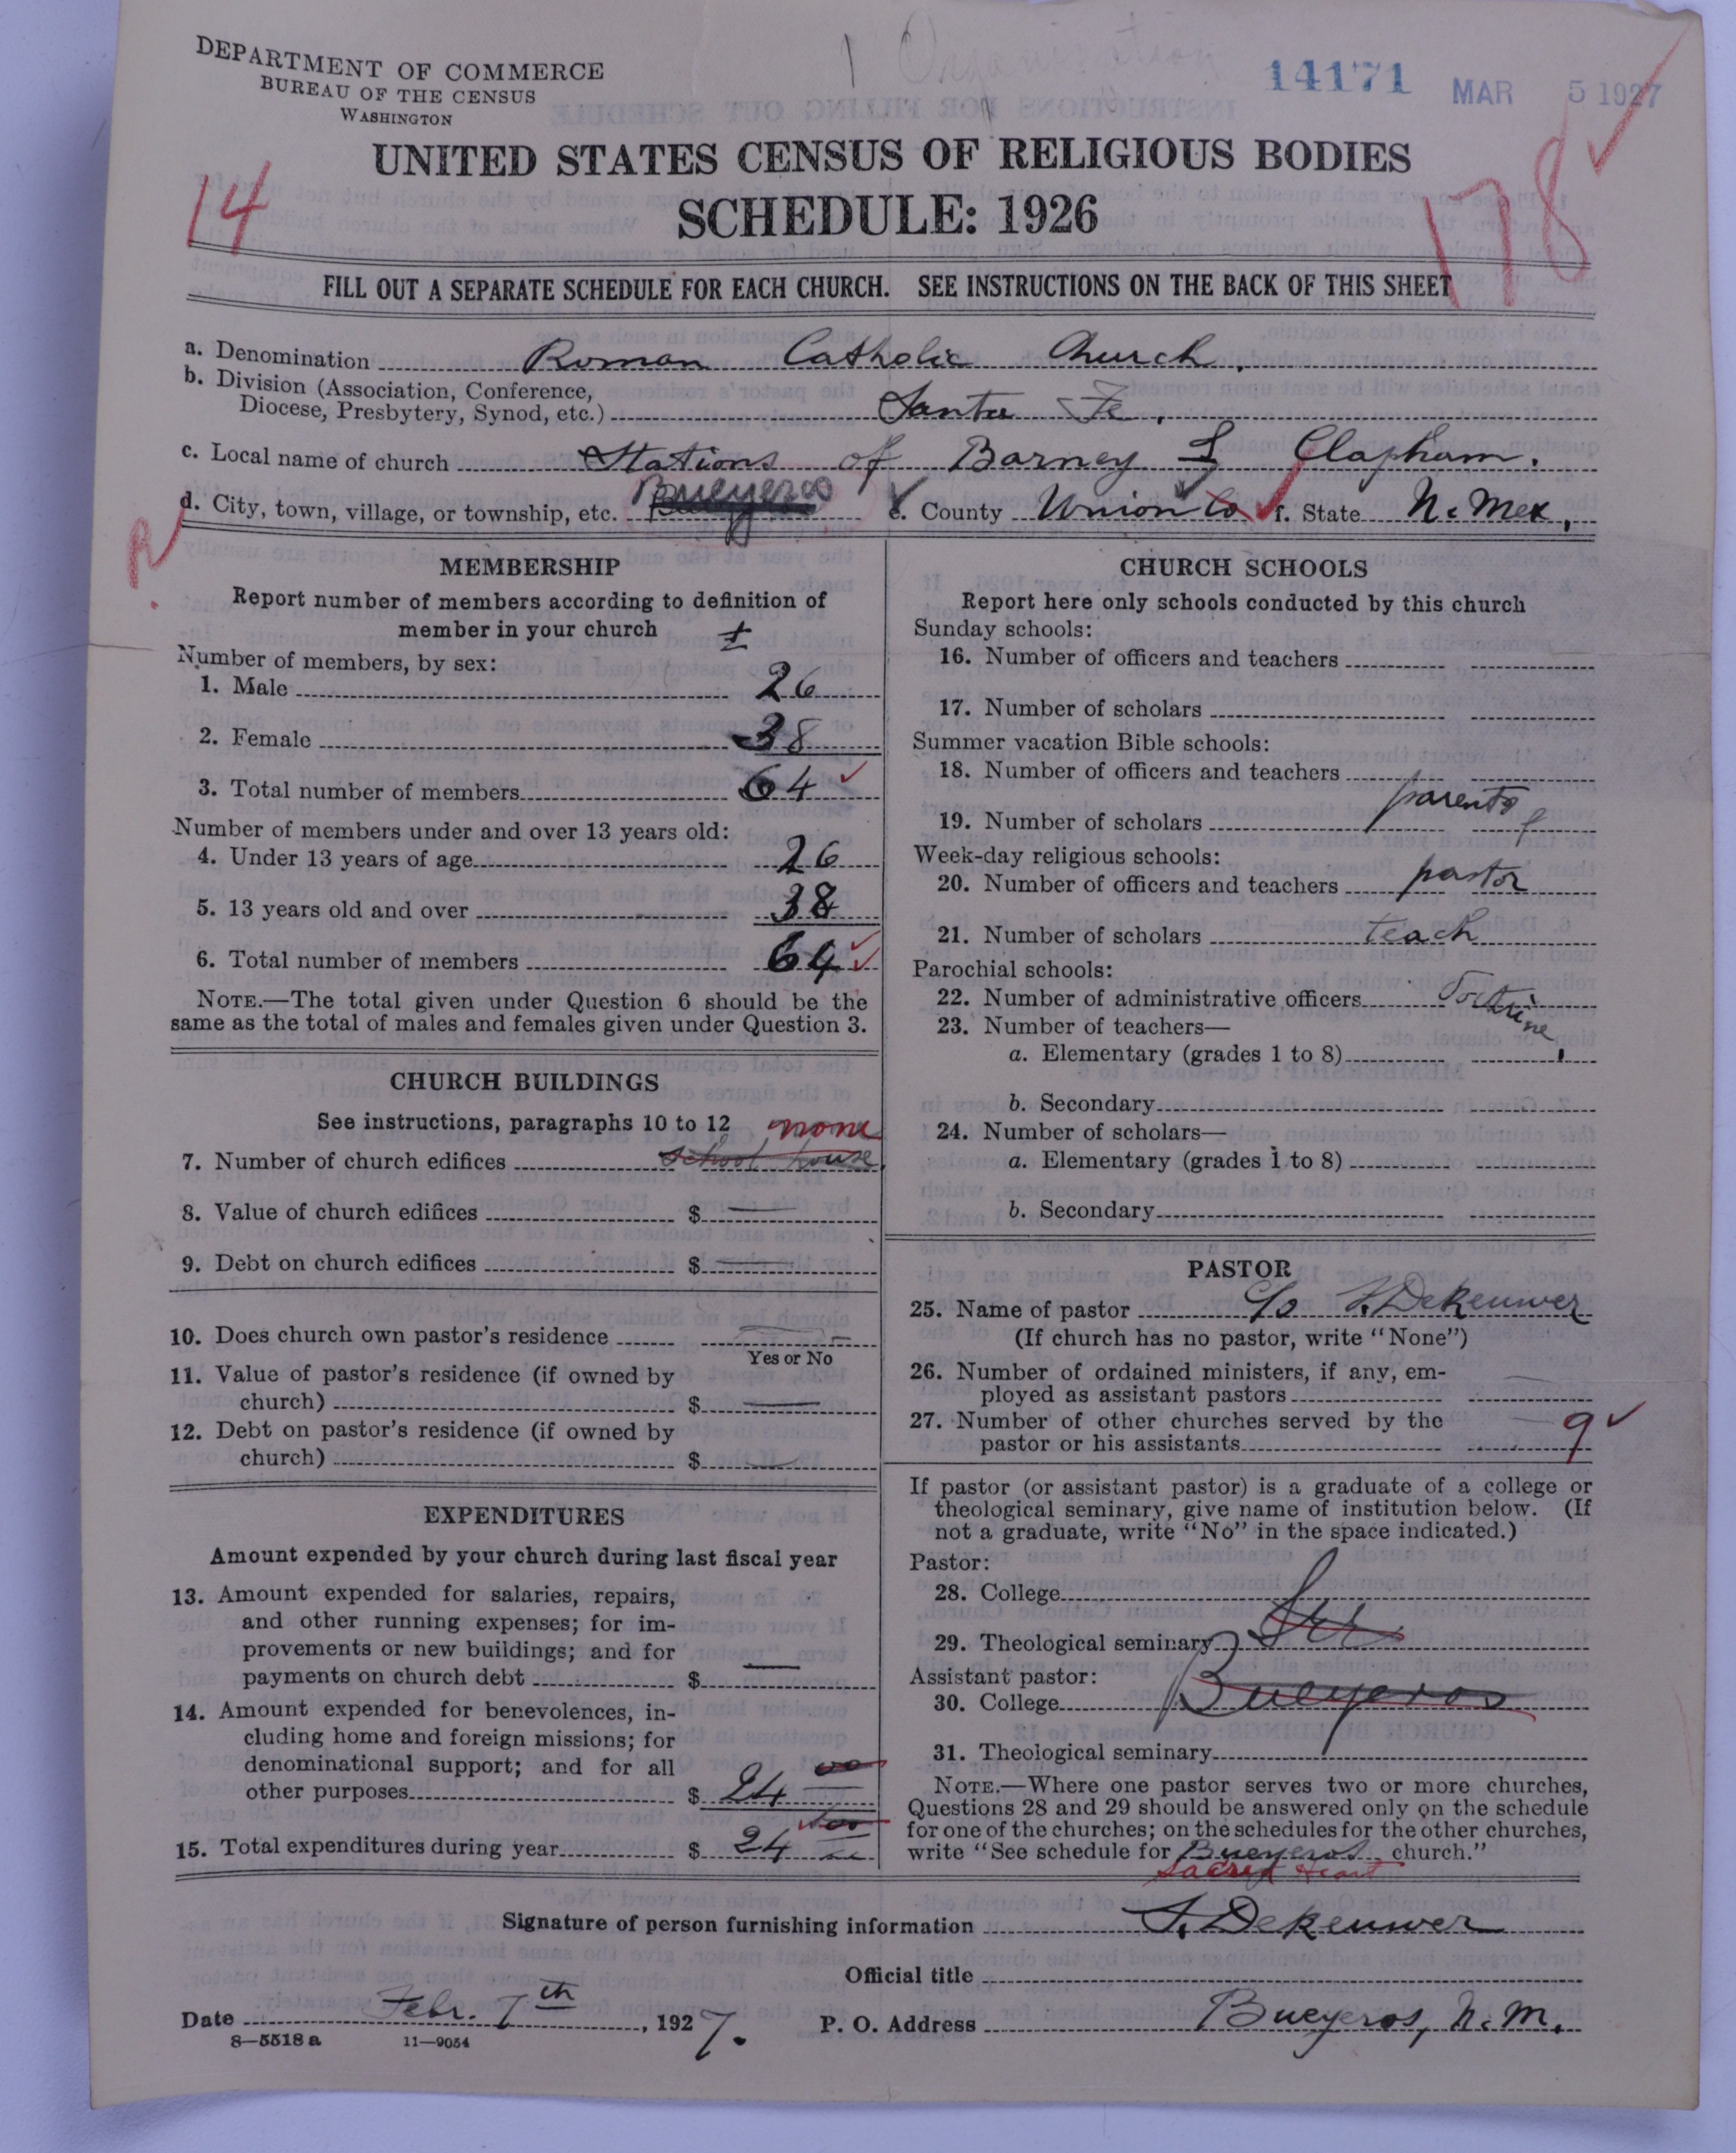 1 Organization
14171 MAR 5 1927
DEPARTMENT OF COMMERCE
BUREAU OF THE CENSUS
WASHINGTON
UNITED STATES CENSUS OF RELIGIOUS BODIES
SCHEDULE: 1926
14
178
FILL OUT A SEPARATE SCHEDULE FOR EACH CHURCH. SEE INSTRUCTIONS ON THE BACK OF THIS SHEET
a. Denomination Roman Catholic Church.
b. Division (Association, Conference,
Diocese, Presbytery, Synod, etc.) Santa Fe.
c. Local name of church Stations of Barney & Clapham.
d. City, town, village, or township, etc. Bueyeros e. County Union Co f. State N. Mex.
R.
MEMBERSHIP
Report number of members according to definition of
member in your church ±
Number of members, by sex:
1. Male 26
2. Female 38
3. Total number of members 64
Number of members under and over 13 years old:
4. Under 13 years of age 26
5. 13 years old and over 38
6. Total number of members 64
NOTE.—The total given under Question 6 should be the
same as the total of males and females given under Question 3.
CHURCH BUILDINGS
See instructions, paragraphs 10 to 12 none
7. Number of church edifices school house
8. Value of church edifices $ —
9. Debt on church edifices $ —
10. Does church own pastor's residence —
Yes or No
11. Value of pastor's residence (if owned by
church) $ —
12. Debt on pastor's residence (if owned by
church) $ —
EXPENDITURES
Amount expended by your church during last fiscal year
13. Amount expended for salaries, repairs,
and other running expenses; for im-
provements or new buildings; and for
payments on church debt $ —
14. Amount expended for benevolences, in-
cluding home and foreign missions; for
denominational support; and for all
other purposes $ 24 00
15. Total expenditures during year $ 24 00
CHURCH SCHOOLS
Report here only schools conducted by this church
Sunday schools:
16. Number of officers and teachers
17. Number of scholars
Summer vacation Bible schools:
18. Number of officers and teachers
19. Number of scholars parents &
Week-day religious schools:
20. Number of officers and teachers pastor
21. Number of scholars teach
Parochial schools:
22. Number of administrative officers Doctrine
23. Number of teachers—
a. Elementary (grades 1 to 8)
b. Secondary
24. Number of scholars—
a. Elementary (grades 1 to 8)
b. Secondary
PASTOR
25. Name of pastor Dekeuwer
(If church has no pastor, write "None")
26. Number of ordained ministers, if any, em-
ployed as assistant pastors —
27. Number of other churches served by the
pastor or his assistants 9
If pastor (or assistant pastor) is a graduate of a college or
theological seminary, give name of institution below. (If
not a graduate, write "No" in the space indicated.)
Pastor:
28. College
29. Theological seminary
Assistant pastor:
30. College Bueyeros
31. Theological seminary
NOTE.—Where one pastor serves two or more churches,
Questions 28 and 29 should be answered only on the schedule
for one of the churches; on the schedules for the other churches,
write "See schedule for Bueyeros church."
Sacred Heart
Signature of person furnishing information Dekeuwer
Official title
Date Febr. 7th, 1927. P. O. Address Bueyeros, N. M.
8—5518 a 11—9054